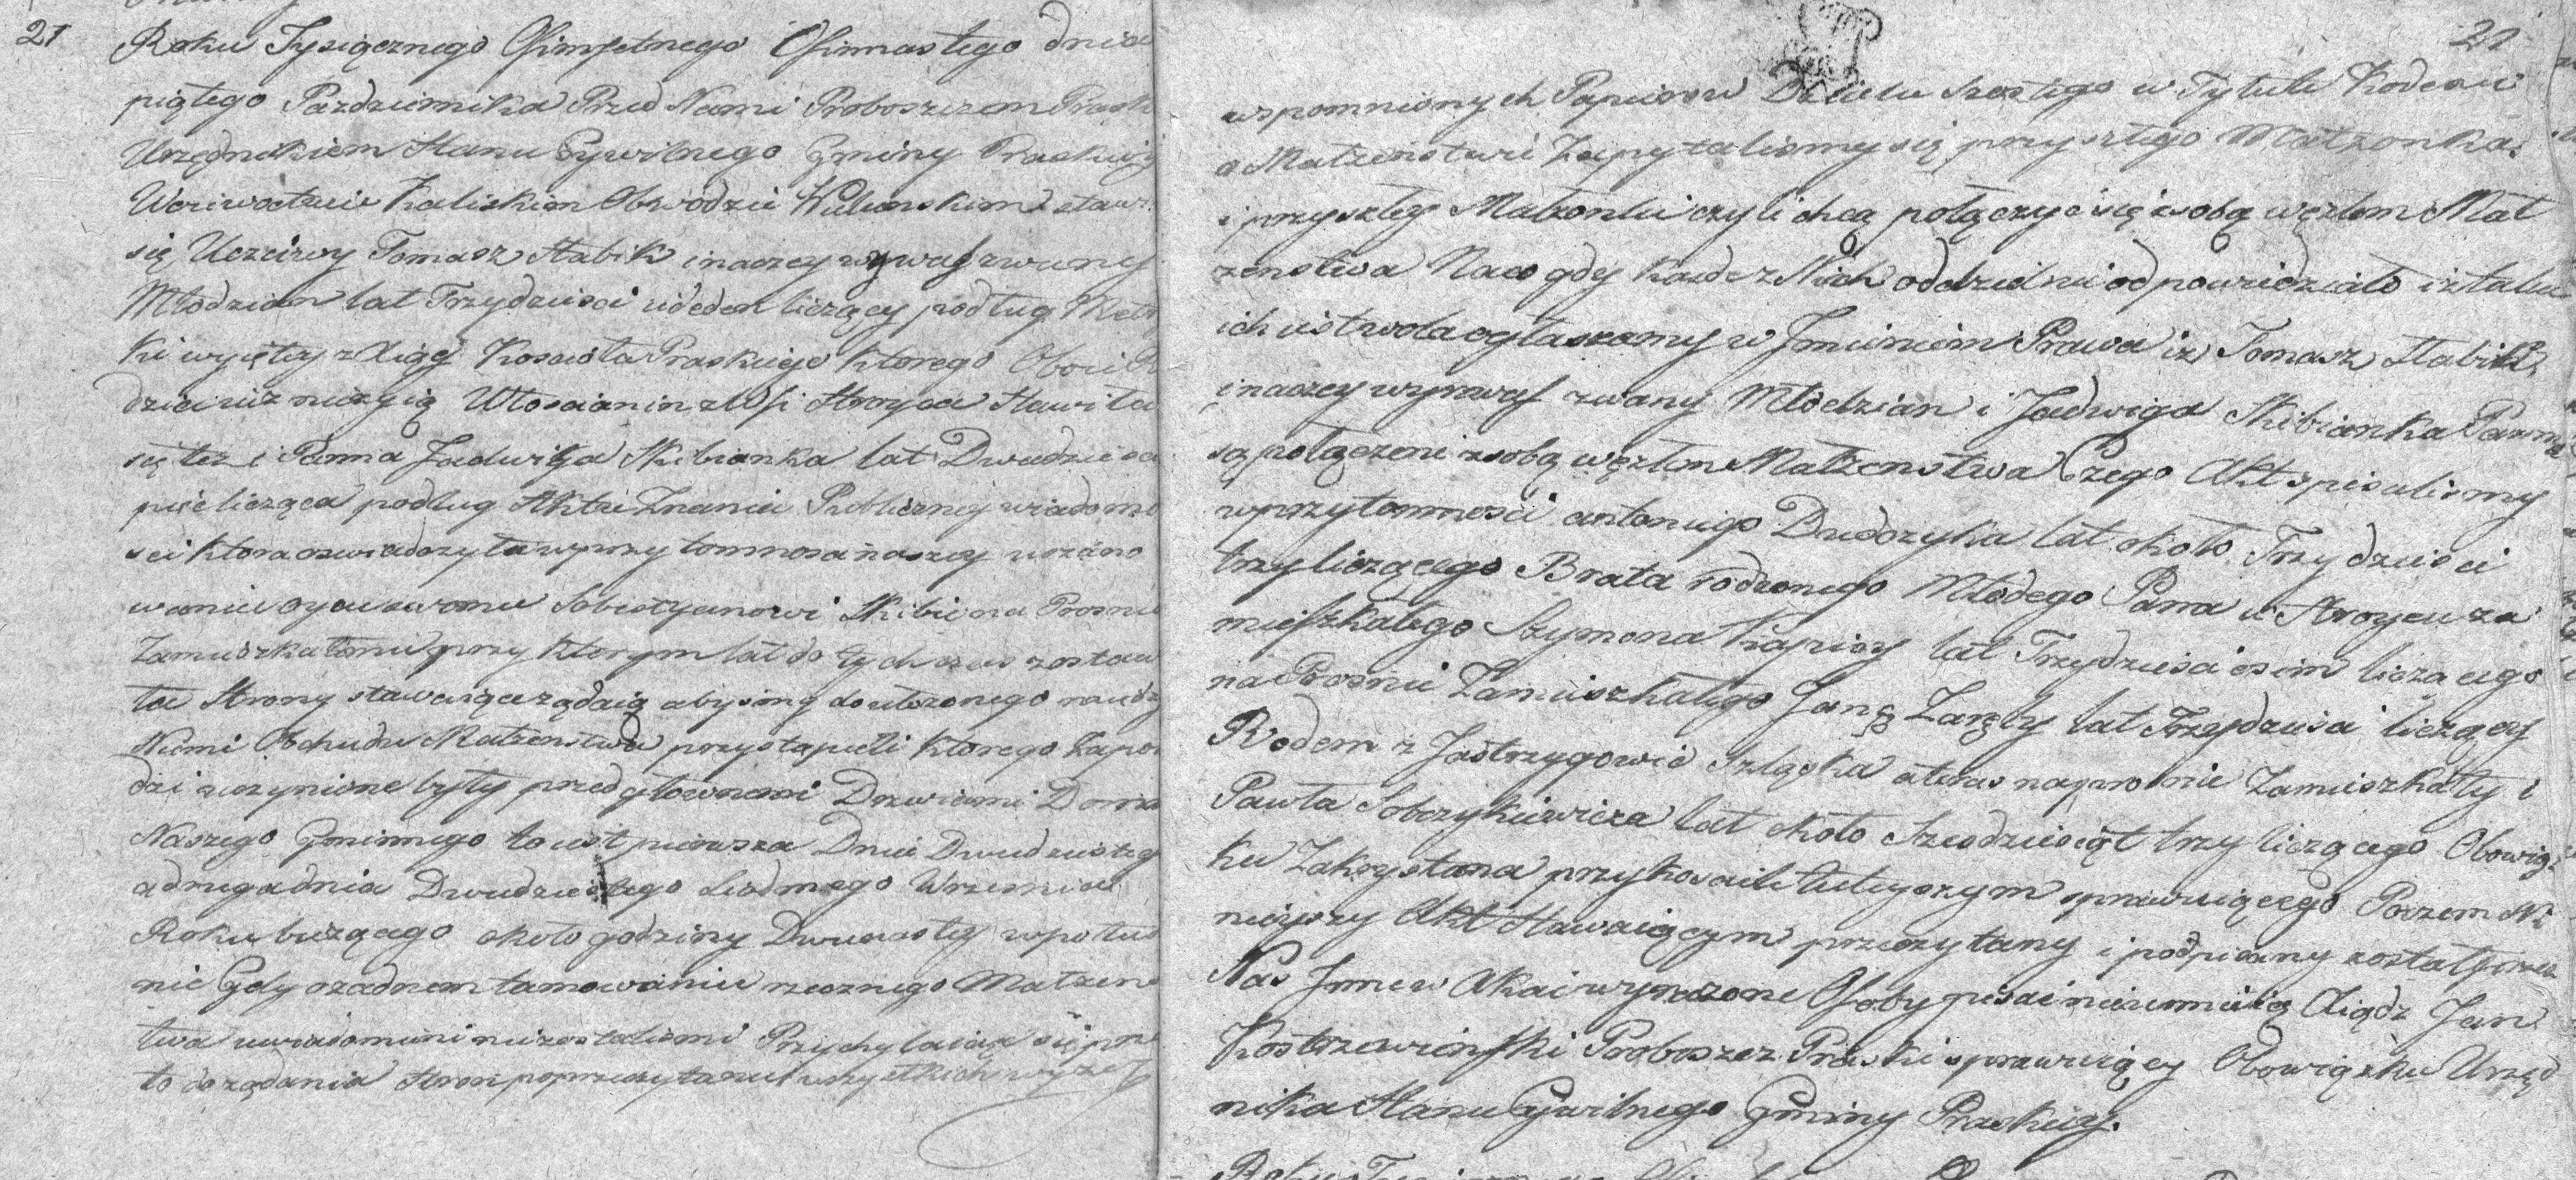 21
Roku Tysiącznego Ośmsetnego Ośmnastego dnia
piątego Pazdziernika Przed Nami Proboszczem Prask
Urzędnikiem Stanu Cywilnego Gminy Praskiey
Woiewodztwie Kaliskim Obwodzie Wielunskim staw
się Uczciwy Tomasz Stabik inaczey zwany
Młodzian lat Trzydziesci ieden liczący podług Met
ki wyiętey z Xiąg Kosciola Praskiego ktorego Oboie R
dzice iuz nieżyią Włoscianin z Wsi Stroyca Stawiła
się tez i Panna Jadwiga Skibianka lat Dwadziescia
pięć licząca podług Aktu Znania Publiczney wiadomo
sci ktora oswiadczyła w przytomnosci naszey uszano
wanie oycu swemu Sobestyanowi Skibie na Prosnie
Zamieszkałemu przy ktorym lat do tych czas zostaw
te Strony stawaiące ządaią abysmy do ułozonego między
Niemi Obchodu Małzenstwa przystąpieli ktorego Zapo
dzi uczynione były przed głownemi Drzwiami Domu
Naszego Gminnego to iest pierwsza Dnia Dwudziesteg
a druga dnia Dwudziestego Siodmego Wrzesnia
Roku biezącego około godziny Dwunastey w połud
nie Gdy o zadnem tamowaniu rzeczonego Małzens
twa uwiadomieni nie zostalismi Przychylaiąc się prze
to do ządania Stron po przeczytaniu wszystkich wyzey
21
wspomnionych Papierow Działu Szostego w Tytule Kodexu
o Małzenstwie Zapytalismy się przyszłego Małzonka
i przyszłey Malzonki czyli chcą połączyc się z sobą węzłem Mał
zenstwa Na co gdy kazde z Nich oddzielnie odpowiedziało iz taka
ich iest wola ogłaszamy w Jmieniem Prawa iz Tomasz Stabik
inaczey zwany Młodzian i Jadwiga Skibianka Panna
są połączeni z sobą węzłem Małzenstwa Czego Akt spisalismy
w przytomnosci antoniego Dudczyka lat około Trzydziesci
trzy liczącego Brata rodzonego Młodego Pana w Stroycu za
mieszkałego Szymona Kapicy lat Trzydziesci osim liczącego
na Prosnie Zamieszkałego Jana Zaręby lat Trzydziesci liczący
Rodem z Jastrzygowic Szląska a teras na prosnie Zamieszkały i
Pawła Sobczykiewicza lat około Szescdziesiąt trzy liczącego Obowiąz
ku Zakrystana przy kosciele tuteyszym sprawuiącego Poczem Ni
nieyszy Akt Stawaiącym przeczytany i podpisany został przez
Nas Jnne w Akcie wyrazone Osoby pisać nieumieią Xiądz Jan
Kostrzewinski Proboszcz Praski sprawuiący Obowiązku Urzęd
nika Stanu Cywilnego Gminy Praskiey.